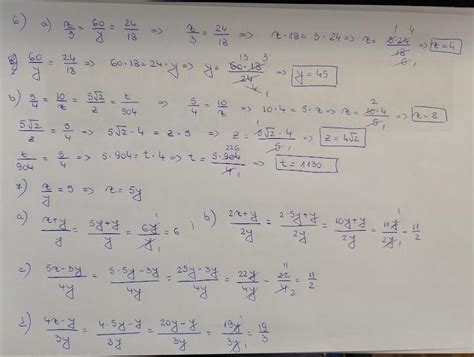 6) a) x/3 = 60/y = 24/18 ⇒ x/3 = 24/18 ⇒ x·18 = 3·24 ⇒ x = 3·24/18 ⇒ x = 4
60/y = 24/18 ⇒ 60·18 = 24·y ⇒ y = 60·18/24 ⇒ y = 45
b) 5/4 = 10/x = 5√2/z = t/904 ⇒ 5/4 = 10/x ⇒ 10·4 = 5·x ⇒ x = 10·4/5 ⇒ x = 8
5√2/z = 5/4 ⇒ 5√2·4 = z·5 ⇒ z = 5√2·4/5 ⇒ z = 4√2
t/904 = 5/4 ⇒ 5·904 = t·4 ⇒ t = 5·904/4 ⇒ t = 1130
7) x/y = 5 ⇒ x = 5y
a) x+y/y = 5y+y/y = 6y/y = 6 ; b) 2x+y/2y = 2·5y+y/2y = 10y+y/2y = 11y/2y = 11/2
c) 5x-3y/4y = 5·5y-3y/4y = 25y-3y/4y = 22y/4y = 22/4 = 11/2
4x-y/3y = 4·5y-y/3y = 20y-y/3y = 19y/3y = 19/3